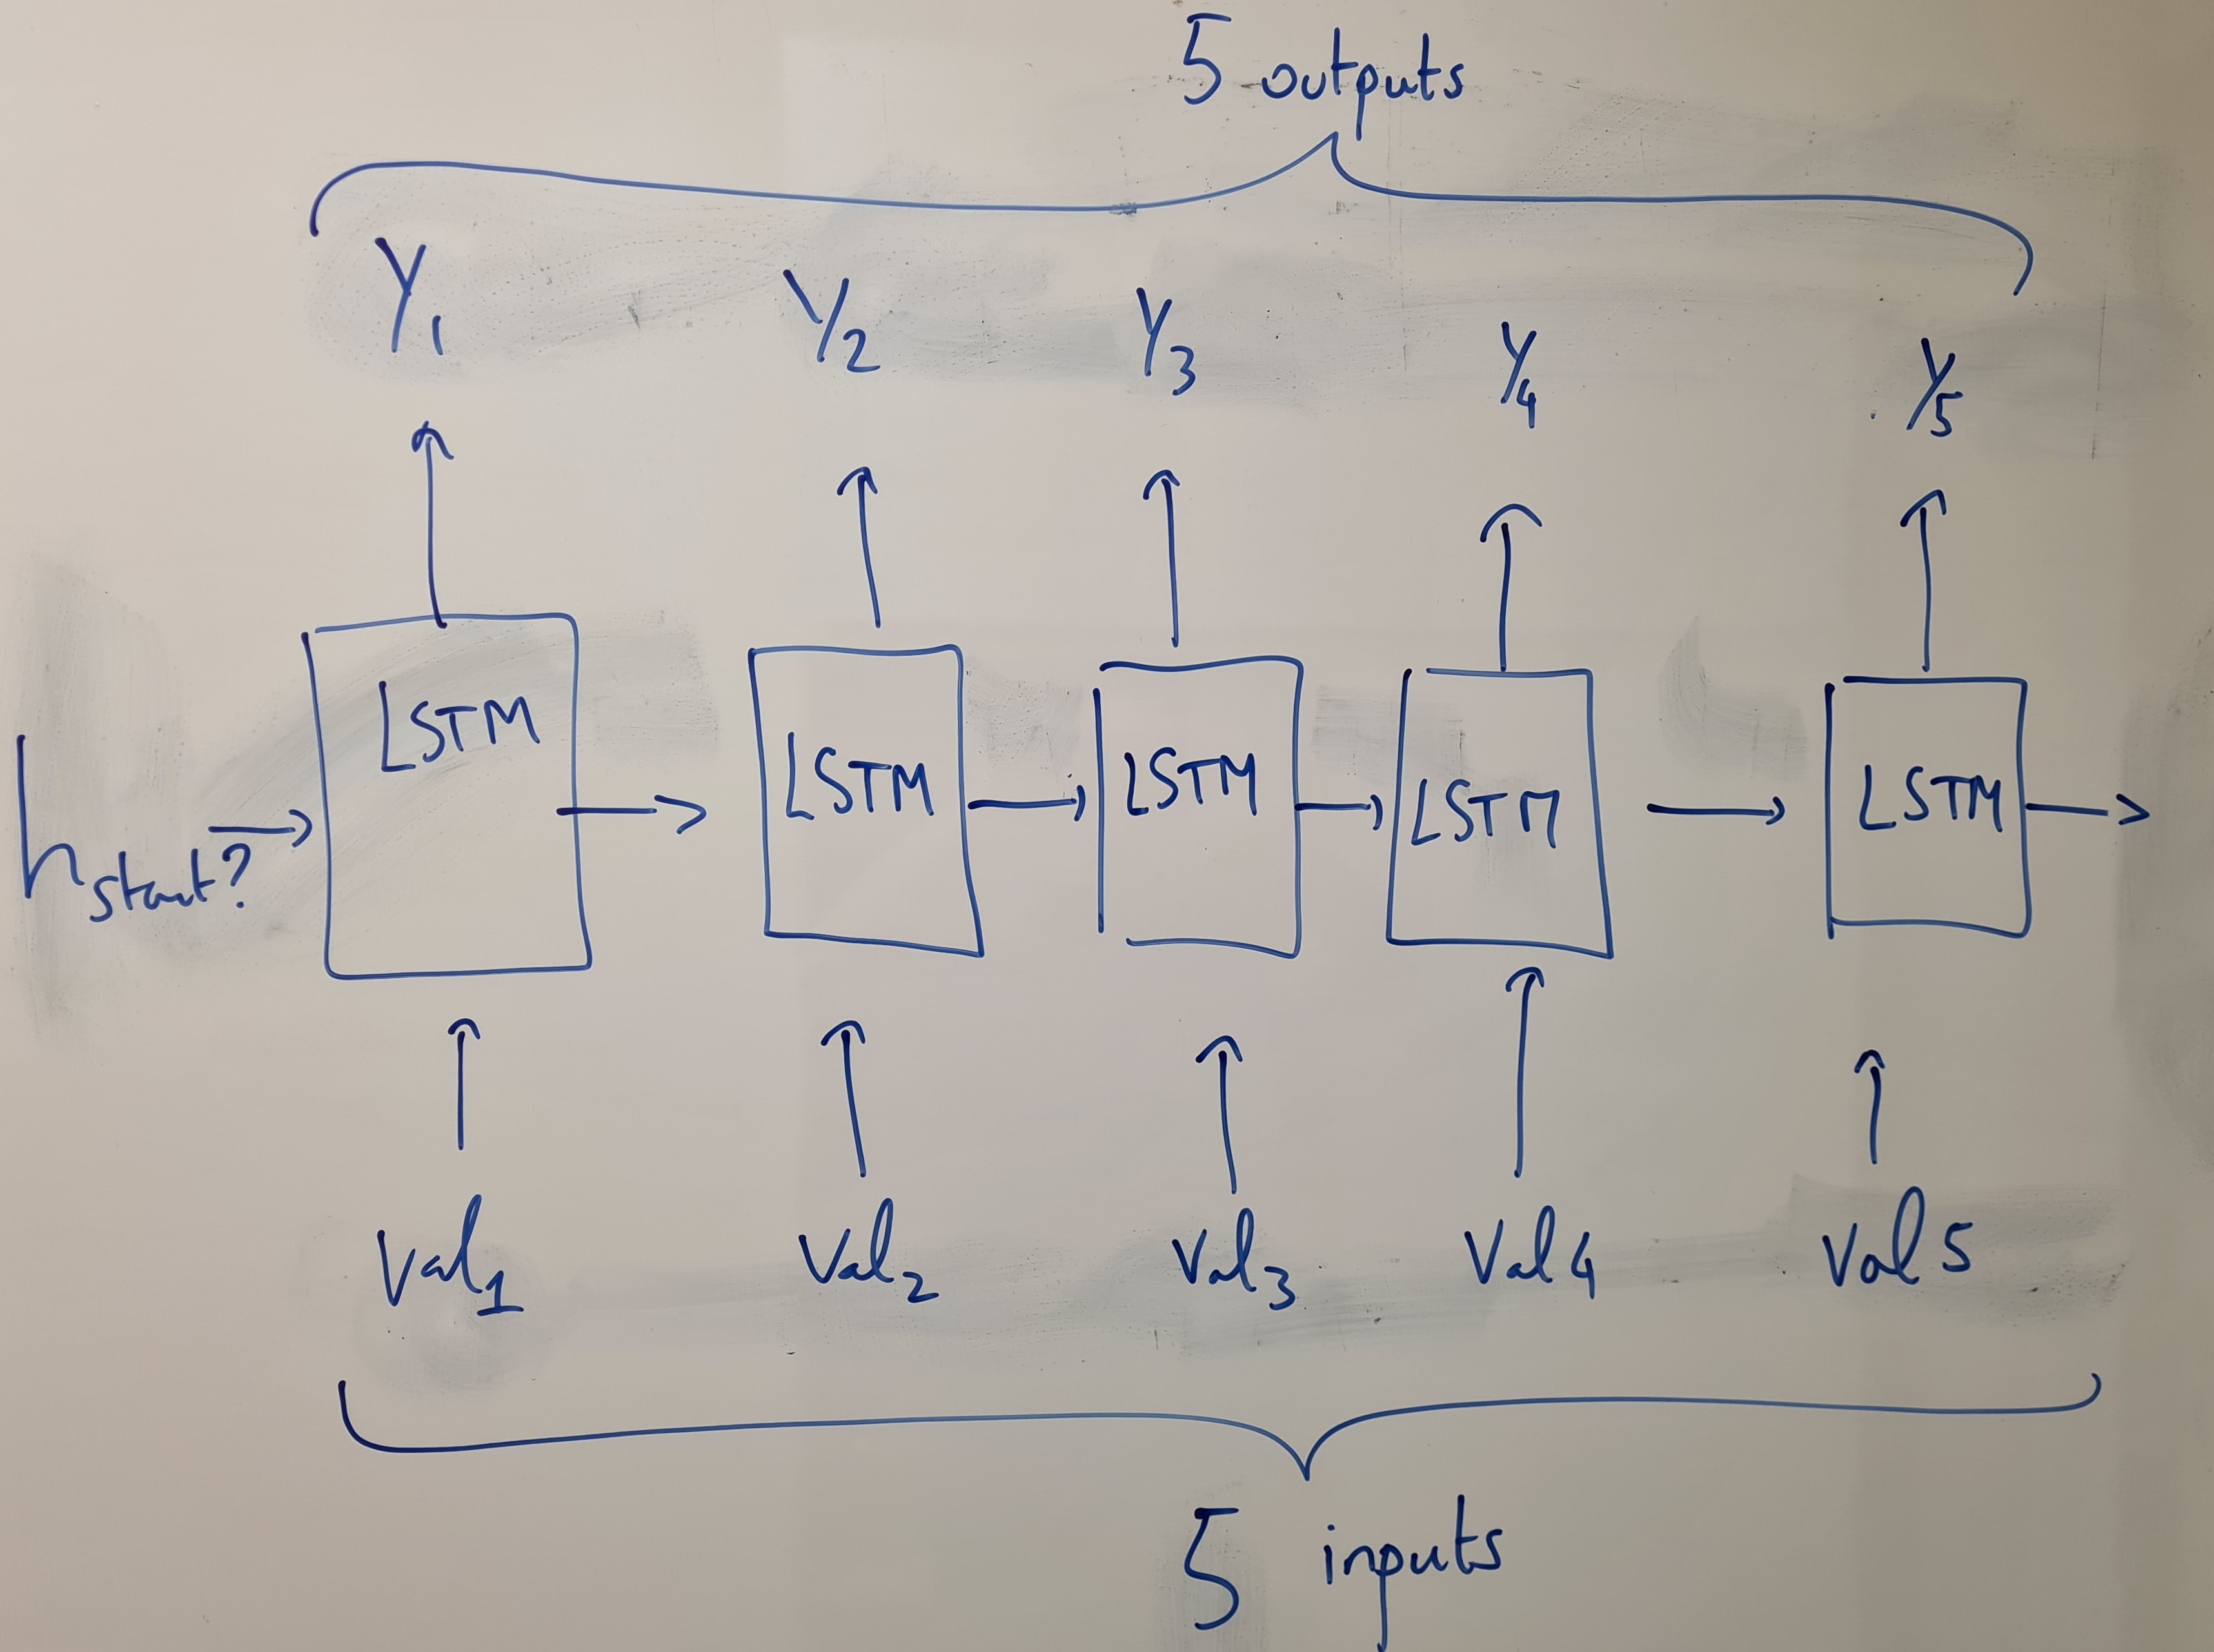 5 outputs
Y1 Y2 Y3 Y4 Y5
LSTM LSTM LSTM LSTM LSTM
hstart?
Val1 Val2 Val3 Val4 Val5
5 inputs